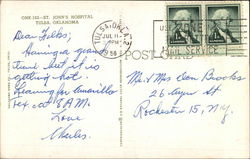 ONE-162—ST. JOHN'S HOSPITAL
TULSA, OKLAHOMA
TULSA, OKLA.
JUL 11
PM
POST CARD
SERVICE
Dear Folks;
Having a grand
time but it is
getting hot.
Leaving for Amarillo
Tex. at 8 A.M.
Love
Charles.
Mr. & Mrs Don Brooks
26
Rochester 15, N.Y.